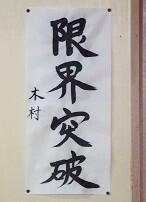 限界突破
木村